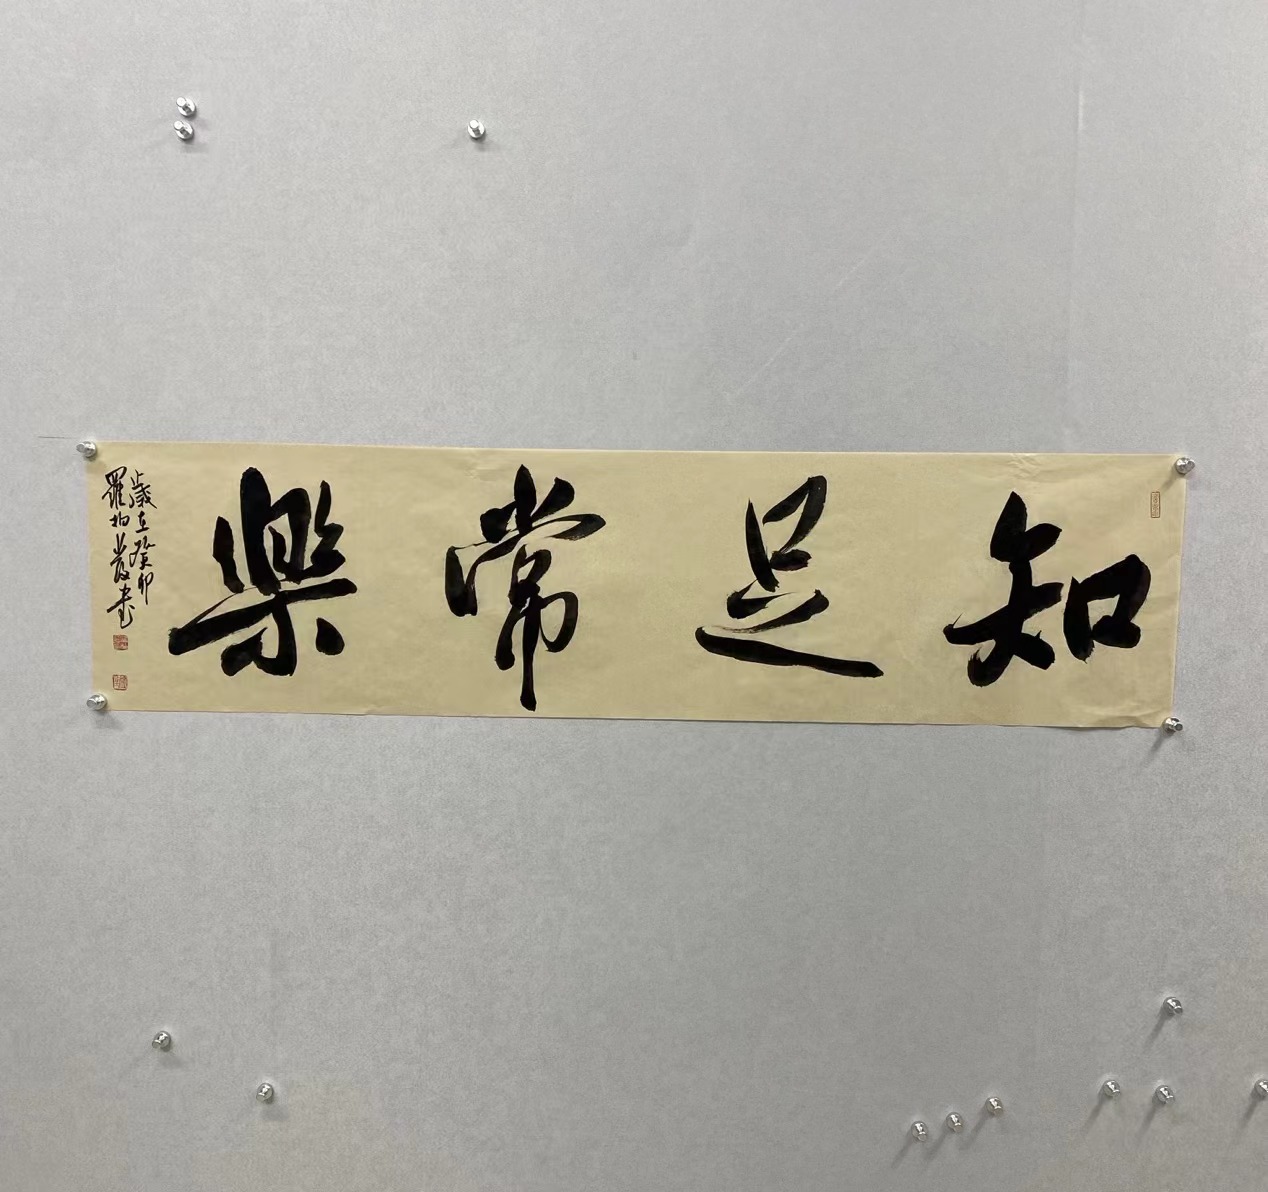 知足常樂
歲在癸卯
羅柏發書